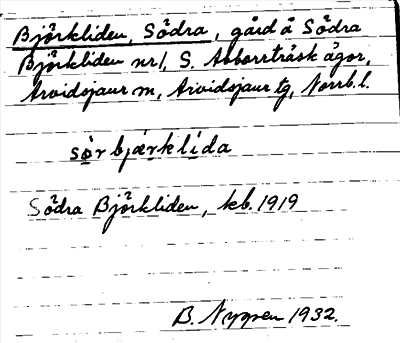 Björkliden, Södra, gård å Södra
Björkliden nr 1, S. Abborrträsk ägor,
Arvidsjaur sn, Arvidsjaur tg, Norrb. l.
sö̀rbjärklída
Södra Björkliden, kb. 1919
B. Nygren 1932.